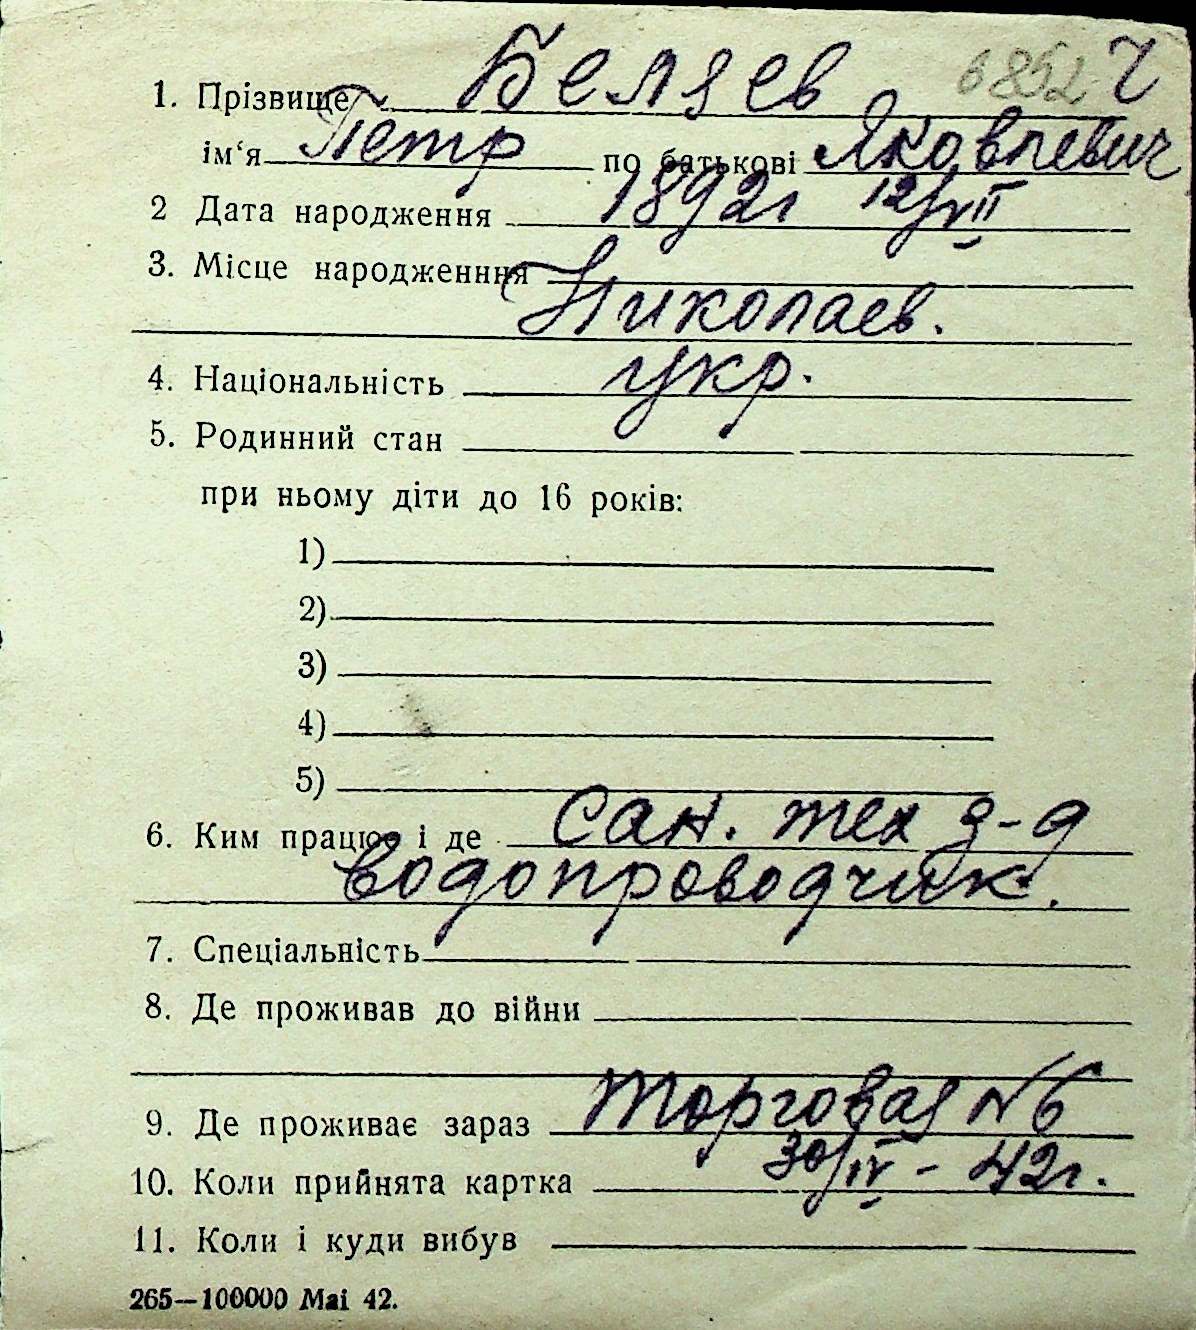 1. Прізвище Беляев 6852 Ч
ім‘я Петр по батькові Яковлевич
2 Дата народження 1892г 12/VII
3. Місце народженння
Николаев.
4. Національність укр.
5. Родинний стан
при ньому діти до 16 років:
1)
2)
3)
4)
5)
6. Ким працює і де Сан. тех з-д
водопроводчик.
7. Спеціальність
8. Де проживав до війни
9. Де проживає зараз Торговая №6
10. Коли прийнята картка 30/IV - 42г.
11. Коли і куди вибув
265—100000 Mai 42.